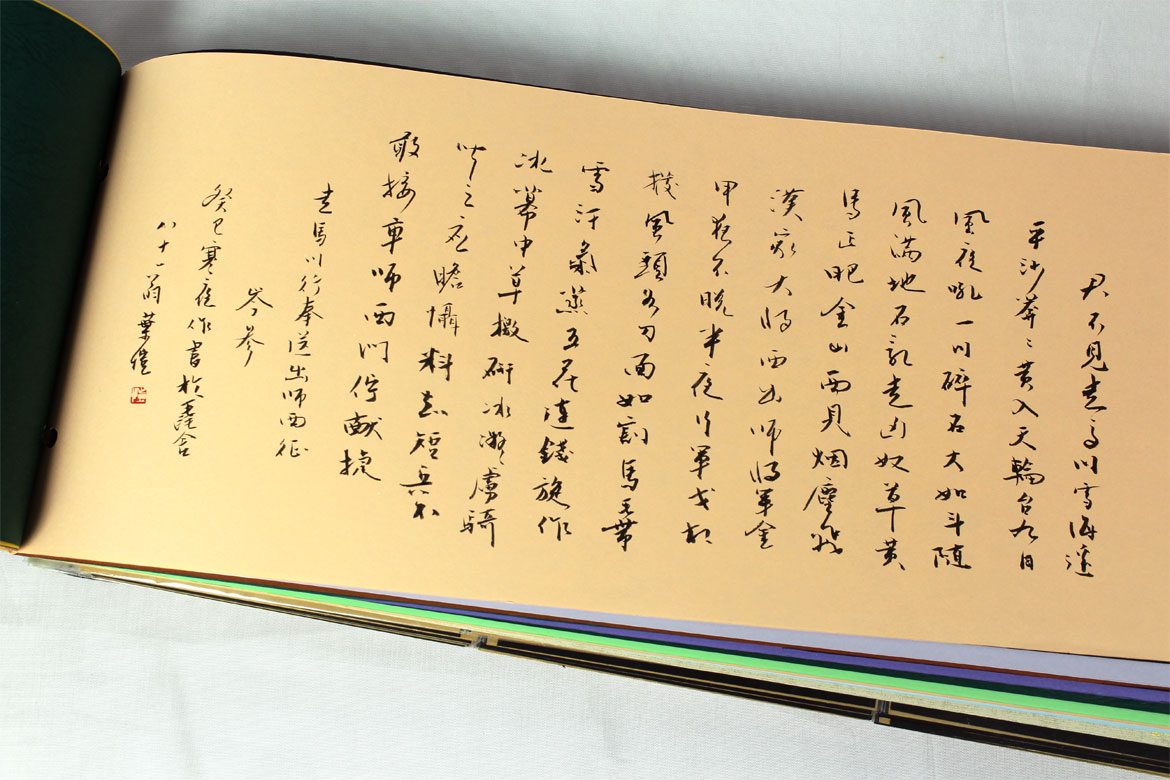 君不見走馬川雪海邊
平沙莽〻黃入天輪台九月
風夜吼一川碎石大如斗隨
風滿地石亂走匈奴草黃
馬正肥金山西見烟塵飛
漢家大將西出師將軍金
甲夜不脫半夜行軍戈相
撥風頭如刀面如割馬毛帶
雪汗氣蒸五花連錢旋作
冰幕中草檄硯冰凝虜騎
聞之應膽懾料知短兵不
敢接車師西門佇獻捷
走馬川行奉送出師西征
岑參
癸巳寒夜作書於舍
八十一翁葉